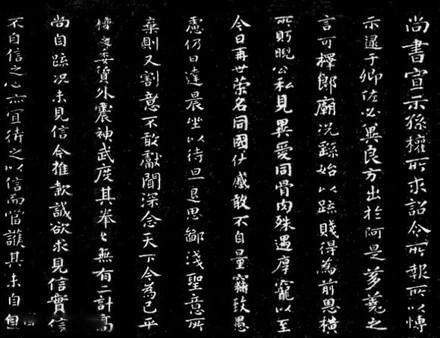 尚書宣示孫權所求詔令所報所以博
示逮于卿佐必冀良方出於阿是芻蕘之
言可擇郎廟況繇始以疏賤得為前恩橫
所盼睨公私見異愛同骨肉殊遇厚寵以至
今日再世榮名同國休慼敢不自量竊致愚
慮仍日達晨坐以待旦退思鄙淺聖意所
棄則又割意不敢獻聞深念天下今為已平
權之委質外震神武度其拳拳無有二計高
尚自疏況未見信今推款誠欲求見信實
不自信之心亦宜待之以信而當護其未自